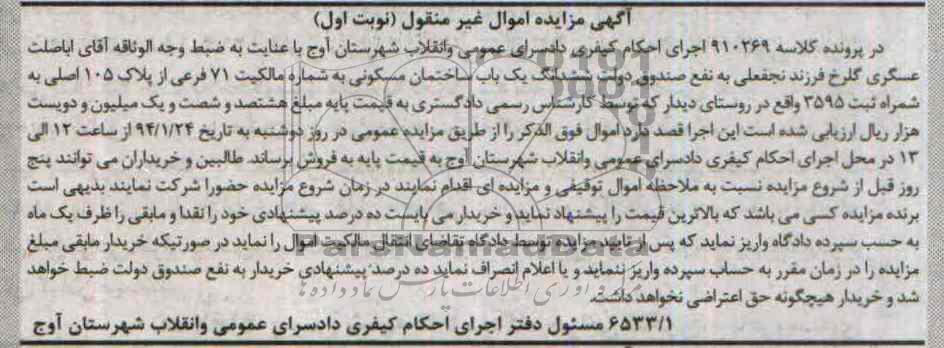 آگهی مزایده اموال غیر منقول (نوبت اول)
در پرونده کلاسه ۹۱۰۲۶۹ اجرای احکام کیفری دادسرای عمومی وانقلاب شهرستان آوج با عنایت به ضبط وجه الوثاقه آقای اباصلت
عسگری گلرخ فرزند نجفعلی به نفع صندوق دولت ششدانگ یک باب ساختمان مسکونی به شماره مالکیت ۷۱ فرعی از پلاک ۱۰۵ اصلی به
شمراه ثبت ۳۵۹۵ واقع در روستای دیدار که توسط کارشناس رسمی دادگستری به قیمت پایه مبلغ هشتصد و شصت و یک میلیون و دویست
هزار ریال ارزیابی شده است این اجرا قصد دارد اموال فوق الذکر را از طریق مزایده عمومی در روز دوشنبه به تاریخ ۹۴/۱/۲۴ از ساعت ۱۲ الی
۱۳ در محل اجرای احکام کیفری دادسرای عمومی وانقلاب شهرستان آوج به قیمت پایه به فروش برساند. طالبین و خریداران می توانند پنج
روز قبل از شروع مزایده نسبت به ملاحظه اموال توقیفی و مزایده ای اقدام نمایند در زمان شروع مزایده حضورا شرکت نمایند بدیهی است
برنده مزایده کسی می باشد که بالاترین قیمت را پیشنهاد نماید و خریدار می بایست ده درصد پیشنهادی خود را نقدا و مابقی را ظرف یک ماه
به حسب سپرده دادگاه واریز نماید که پس از تایید مزایده توسط دادگاه تقاضای انتقال مالکیت اموال را نماید در صورتیکه خریدار مابقی مبلغ
مزایده را در زمان مقرر به حساب سپرده واریز ننماید و یا اعلام انصراف نماید ده درصد پیشنهادی خریدار به نفع صندوق دولت ضبط خواهد
شد و خریدار هیچگونه حق اعتراضی نخواهد داشت.
۶۵۳۳/۱ مسئول دفتر اجرای احکام کیفری دادسرای عمومی وانقلاب شهرستان آوج
ParsNamadData